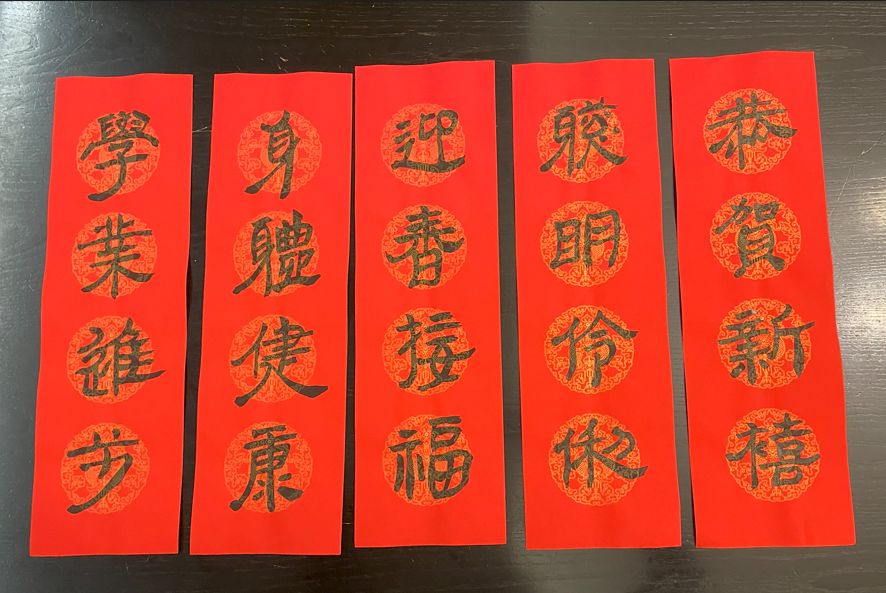 恭賀新禧
聰明伶俐
迎春接福
身體健康
學業進步